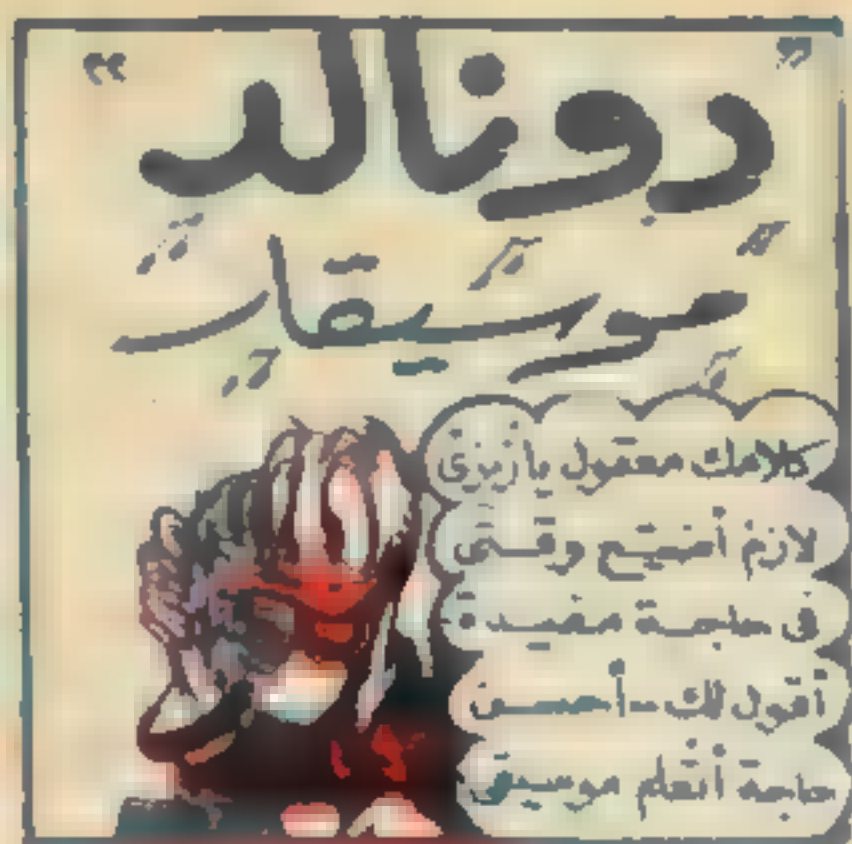 "دونالد"
موسيقار
كلامك معقول يا زيزى
لازم أضيع وقتى
فى حاجة مفيدة
أقول لك - أحسن
حاجة أتعلم موسيقى